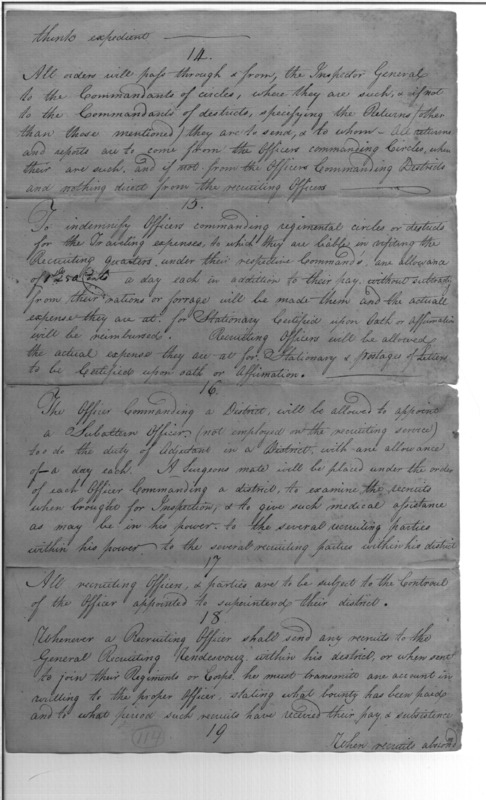 think expedient
14.
All orders will pass through & from, the Inspector General
to the Commandants of circles, where they are such, & if not
to the Commandants of districts, specifying the Returns (other
than those mentioned) they are to send, & to whom - All returns
and reports are to come from the Officers commanding Circles, when
their are such, and if not from the Officers Commanding Districts
and nothing direct from the recruiting Officers
15.
To indemnify Officers commanding regimental circles or districts
for the Traveling expenses, to which they are liable in visiting the
Recruiting Quarters, under their respective Commands, an allowance
of a day each in addition to their pay, without
from their rations or forrage will be made them and the actuall
expense they are at for Stationary Certified upon Oath or affirmation
will be reimbursed. Recruiting Officers will be allowed
the actual expense they are at for Stationary & postages of letters
to be Certified upon oath or Affirmation.
16.
The Officer Commanding a District, will be allowed to appoint
a Subaltern Officer (not employed in the recruiting service)
to do the duty of Adjutant in a District, with an allowance
of a day each. A Surgeons mate will be placed under the order
of each Officer Commanding a district, to examine the recruits
when brought for Inspection, & to give such medical assistance
as may be in his power, to the several recruiting parties
within his power to the several recruiting parties within his district
17
All recruiting Officers, & parties are to be subject to the Controul
of the Officer appointed to superintend their district.
18
Whenever a Recruiting Officer shall send any recruits to the
General Recruiting Rendevouz within his district, or when sent
to join their Regiments or Corps, he must transmit an account in
writing to the proper Officer, stating what bounty has been paid
and to what period such recruits have received their pay & subsistence
19
When recruits